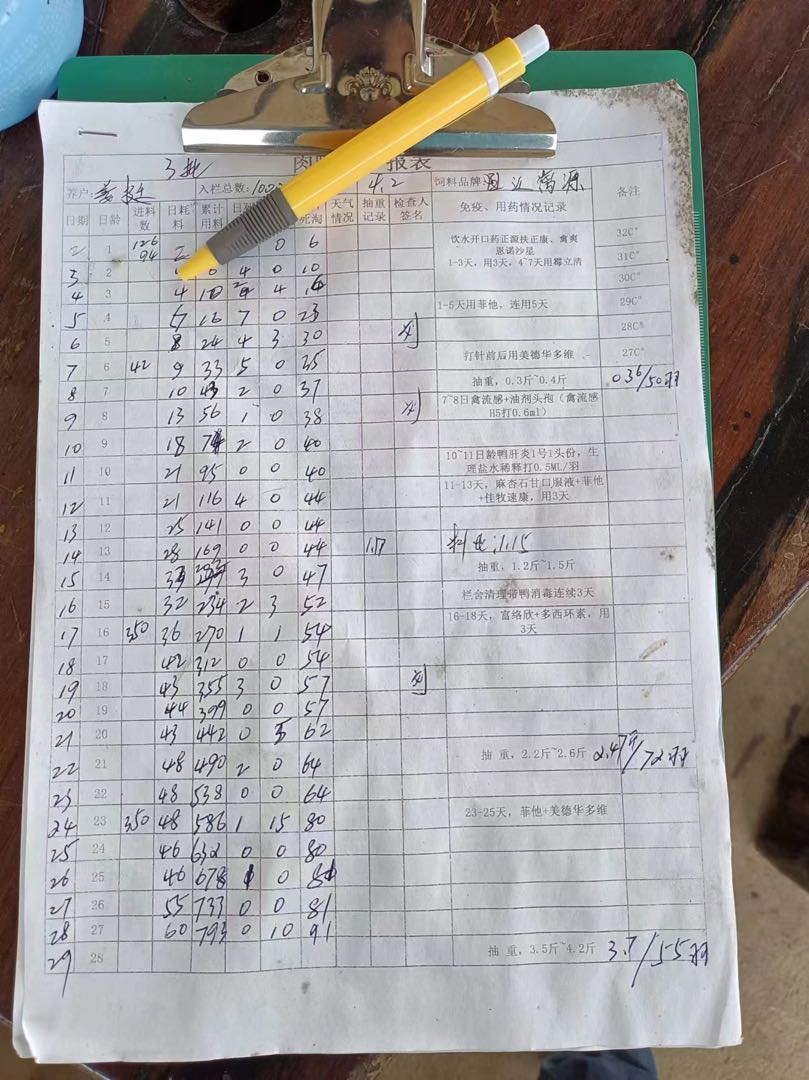 3批
肉 报表
养户: 入栏总数: 4.2 饲料品牌:
日期 日龄 进料数 日耗料 累计用料 死淘 天气情况 抽重记录 检查人签名 免疫、用药情况记录 备注
2 1 126 94 2 0 6 饮水开口药正源扶正康、禽爽 32C°
恩诺沙星
3 2 4 0 10 1-3天，用3天，4~7天用霉立清 31C°
4 3 4 10 4 30C°
5 4 16 7 0 23 1-5天用菲他，连用5天 29C°
6 5 8 24 4 3 30 28C°
7 6 42 9 33 5 0 35 打针前后用美德华多维 27C°
8 7 10 43 2 0 37 抽重，0.3斤~0.4斤 036/50羽
9 8 13 56 1 0 38 7~8日禽流感+油剂头孢（禽流感
H5打0.6ml）
10 9 18 74 2 0 40
11 10 21 95 0 0 40 10~11日龄鸭肝炎1号1头份，生
理盐水稀释打0.5ML/羽
12 11 21 116 4 0 44 11-13天，麻杏石甘口服液+菲他+
佳牧速康，用3天
13 12 25 141 0 0 44
14 13 28 169 0 0 44 1.17 料比:1.15
15 14 3 0 47 抽重，1.2斤~1.5斤
16 15 32 234 2 3 52 栏舍清理带鸭消毒连续3天
17 16 350 36 270 1 1 54 16-18天，富络欣+多西环素，用
3天
18 17 42 312 0 0 54
19 18 43 355 3 0 57
20 19 44 399 0 0 57
21 20 43 442 0 5 62
22 21 48 490 2 0 64 抽 重，2.2斤~2.6斤 2.47斤/72羽
23 22 48 538 0 0 64
24 23 350 48 586 1 15 80 23-25天，菲他+美德华多维
25 24 46 632 0 0 80
26 25 46 678 1 0 81
27 26 55 733 0 0 81
28 27 60 793 0 10 91
29 28 抽 重，3.5斤~4.2斤 3.7/55羽